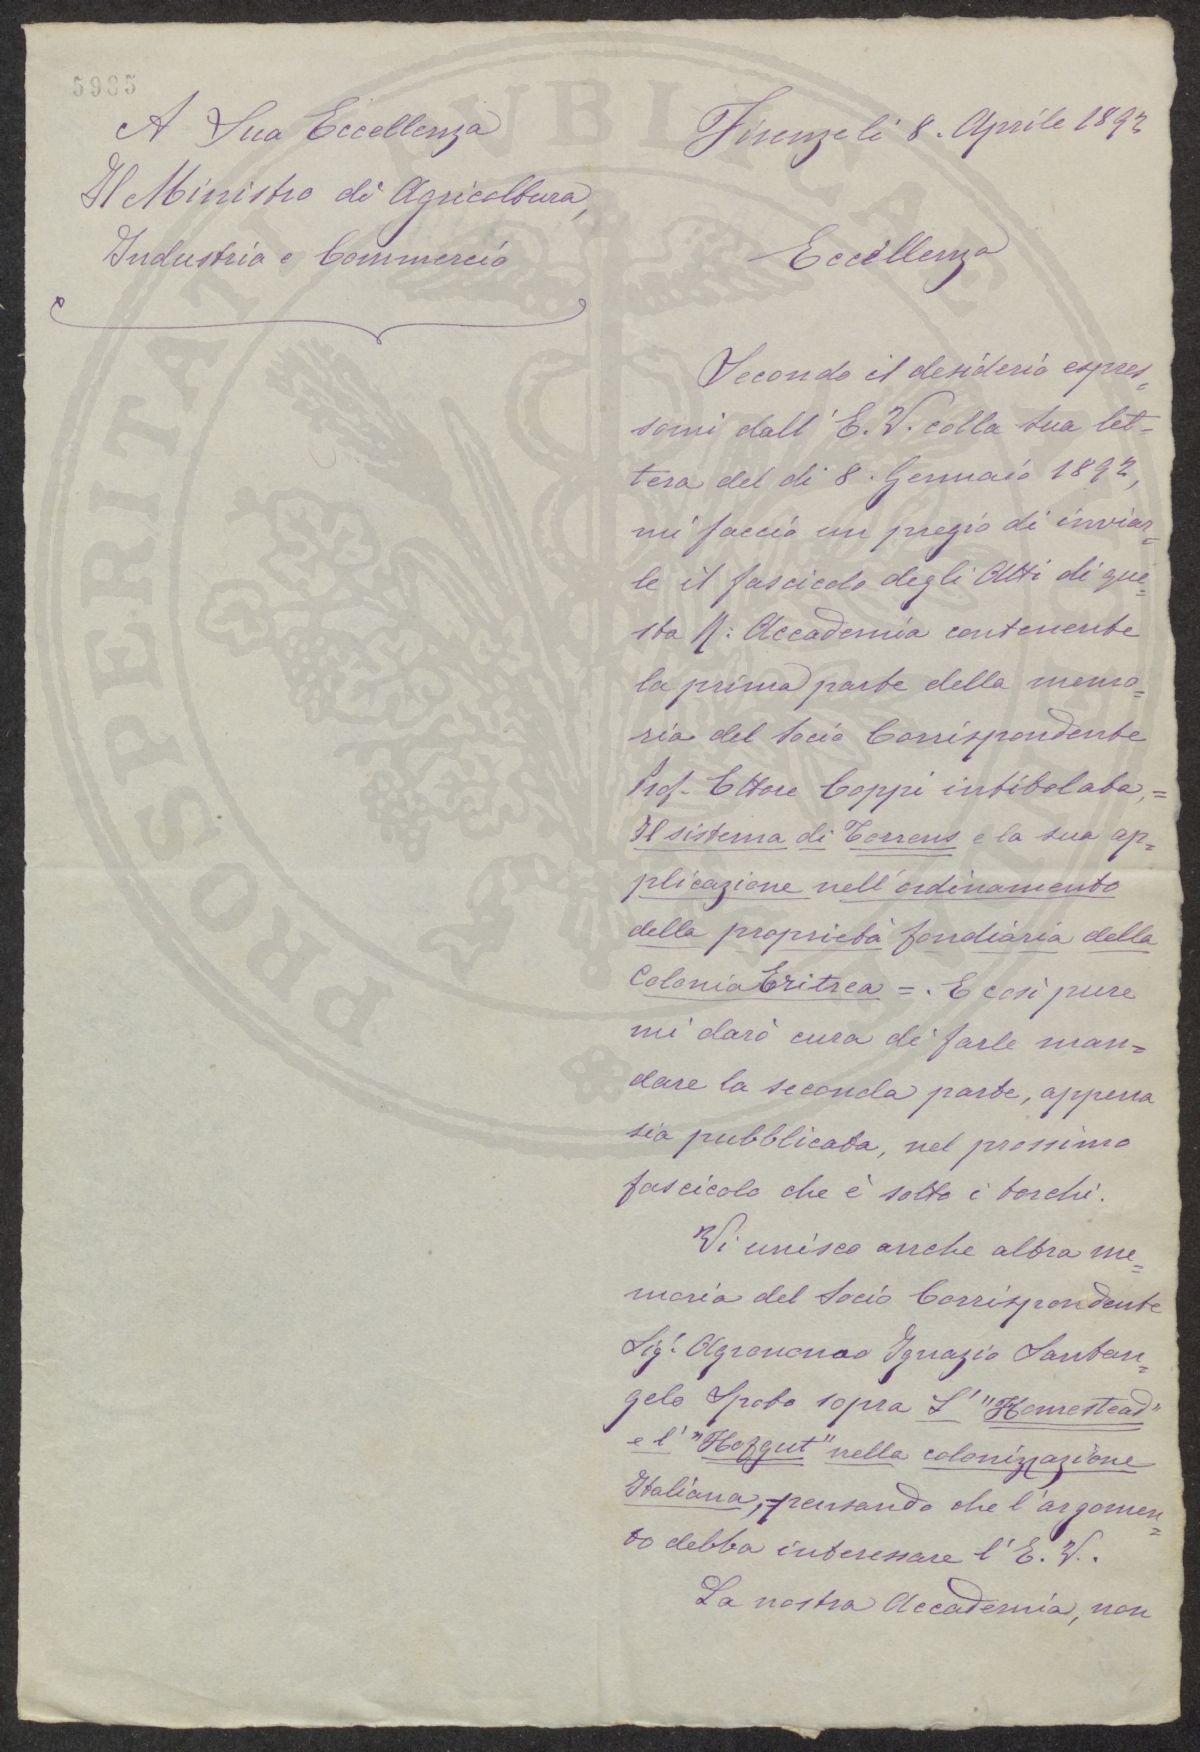 5985
A Sua Eccellenza
Il Ministro di Agricoltura,
Industria e Commercio
Firenze li 8. Aprile 1892
Eccellenza
Secondo il desiderio espres=
somi dall' E. V. colla sua let=
tera del di 8. Gennaio 1892,
mi faccio un pregio di inviar=
le il fascicolo degli Atti di que=
sta R: Accademia contenente
la prima parte della memo=
ria del Socio Corrispondente
Prof. Ettore Coppi intitolata, =
Il sistema di Torrens e la sua ap=
plicazione nell'ordinamento
della proprietà fondiaria della
Colonia Eritrea = . E così pure
mi darò cura di farle man=
dare la seconda parte, appena
sia pubblicata, nel prossimo
fascicolo che è sotto i torchi.
Vi unisco anche altra me=
moria del Socio Corrispondente
Sig.r Agronomo Ignazio Santan=
gelo Spoto sopra L' "Homestead"
e l' "Hofgut" nella colonizzazione
Italiana, = pensando che l'argomen=
to debba interessare l'E. V..
La nostra Accademia, non
PROSPERITATI PUBLICAE